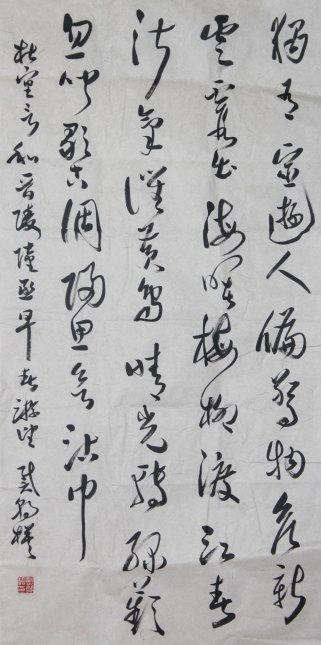 獨有宦遊人偏驚物候新
雲霞出海曙梅柳渡江春
淑氣催黃鳥晴光轉綠蘋
忽聞歌古調歸思欲沾巾
杜審言和晉陵陸丞早春游望